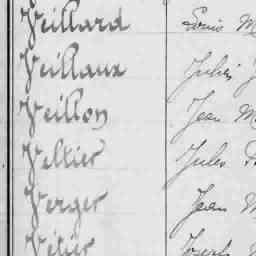 Veillard Louis M
Veillaux Jules J
Veillon Jean M
Veltier Jules
Verger Jean M
Joseph